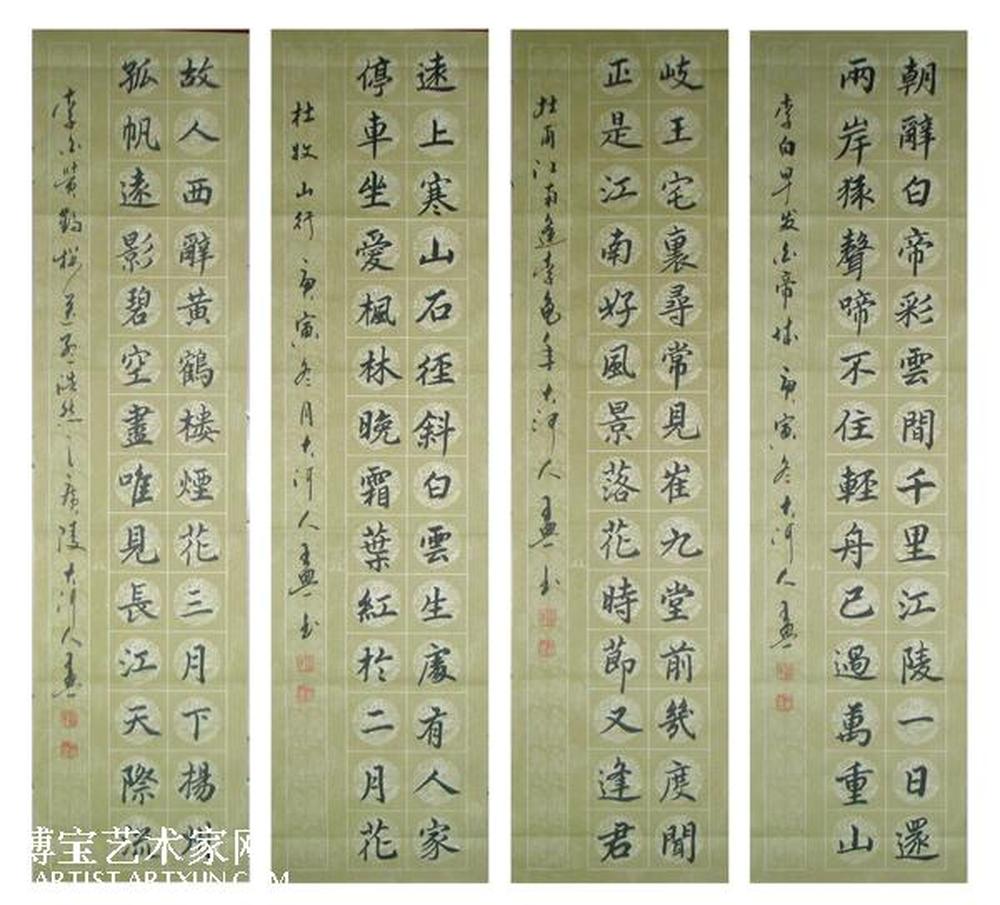 朝辭白帝彩雲間千里江陵一日還
兩岸猿聲啼不住輕舟已過萬重山
李白早发白帝城 庚寅冬大河人
岐王宅裏尋常見崔九堂前幾度聞
正是江南好風景落花時節又逢君
杜甫江南逢李龟年大河人 书
遠上寒山石徑斜白雲生處有人家
停車坐愛楓林晚霜葉紅於二月花
杜牧山行 庚寅冬月大河人 书
故人西辭黄鶴楼煙花三月下揚州
孤帆遠影碧空盡唯見長江天際流
李白黄鹤楼送孟浩然之广陵大河人
博宝艺术家网
ARTIST.ARTXUN.COM